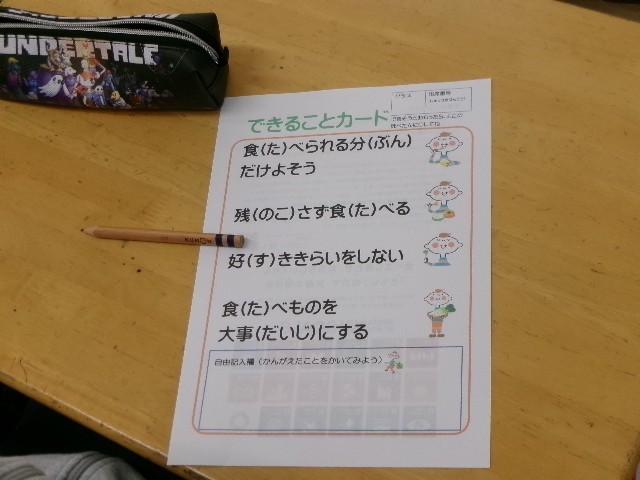 UNDERTALE
クラス
できることカード
食(た)べられる分(ぶん)
だけよそう
残(のこ)さず食(た)べる
好(す)ききらいをしない
食(た)べものを
大事(だいじ)にする
自由記入欄(かんがえたことをかいてみよう)